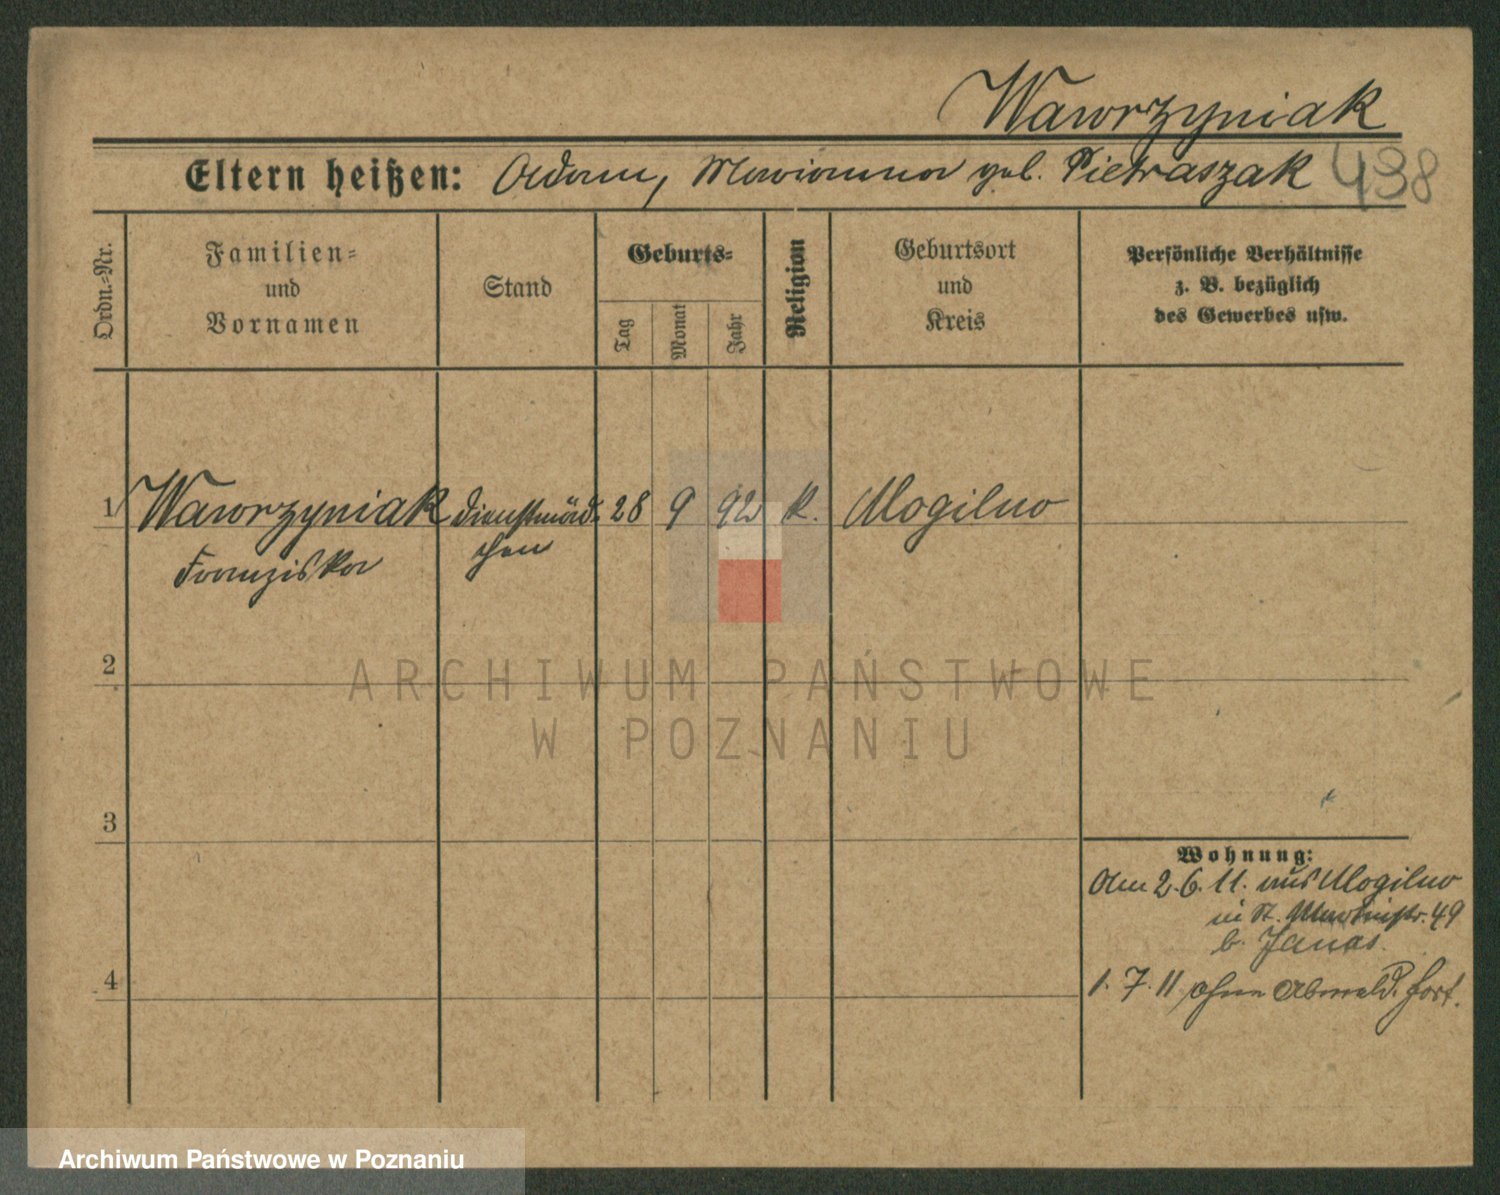 Wawrzyniak
Eltern heißen: Adam, Marianna geb. Pietraszak 438
Ordn.-Nr.
Familien-
und
Vornamen
Stand
Geburts-
Tag
Monat
Jahr
Religion
Geburtsort
und
Kreis
Persönliche Verhältnisse
z. B. bezüglich
des Gewerbes usw.
1 Wawrzyniak Dienstmäd- 28 9 92 k. Mogilno
Franziska chen
2
ARCHIWUM PAŃSTWOWE
W POZNANIU
3
Wohnung:
Am 2.6.11. aus Mogilno
in St. Martinstr. 49
b. Janas.
4
1.7.11 ohne Abmeld. fort.
Archiwum Państwowe w Poznaniu